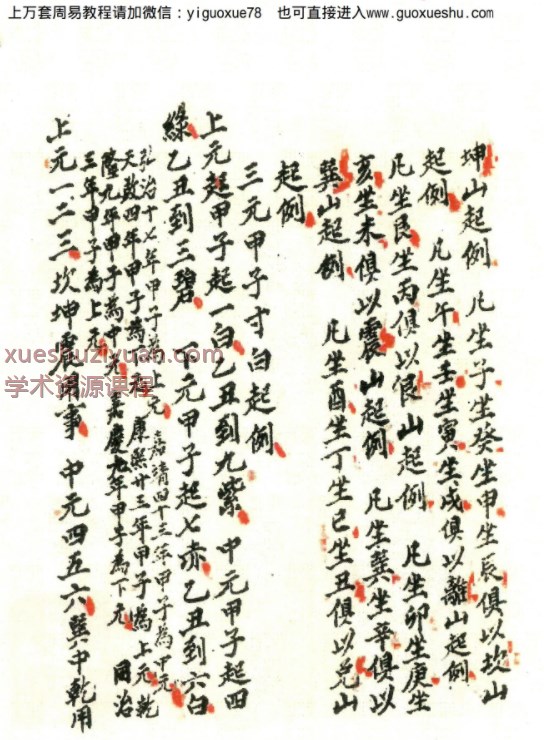 上万套周易教程请加微信：yiguoxue78　也可直接进入www.guoxueshu.com
坤山起例　凡坐子坐癸坐甲坐辰俱以坎山
起例　凡坐午坐壬坐寅坐戌俱以離山起例
凡坐艮坐丙俱以艮山起例　凡坐卯坐庚坐
亥坐未俱以震山起例　凡坐巽坐辛俱以
巽山起例　凡坐酉坐丁坐巳坐丑俱以兌山
起例
三元甲子寸白起例
上元起甲子起一白乙丑到九紫　中元甲子起四
綠乙丑到三碧　下元甲子起七赤乙丑到六白
弘治十七年甲子為上元　嘉靖四十三年甲子為中元
天啟四年甲子為　元　康熙廿三年甲子為上元乾
隆九年甲子為中元　嘉慶九年甲子為下元　同治
三年甲子為上元
上元一二三坎坤震　事　中元四五六巽中乾用
xueshuziyuan.com
学术资源课程